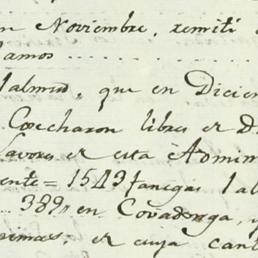 en Noviembre, remití
Ramos
Palmar, que en Diciem
Cosecharon libres de D
Lavores de esta Admin
ente = 1543 fanegas
389 en Covadonga, y
primas, de cuya cant